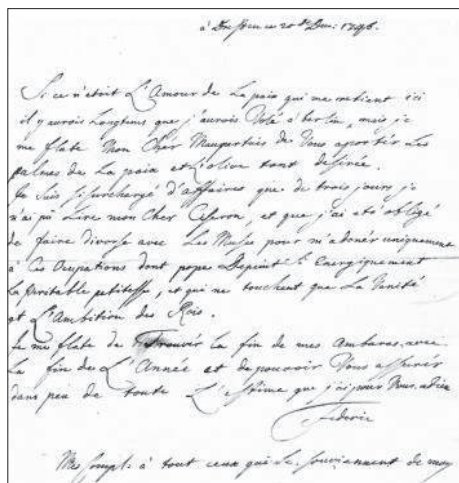 à Dresden ce 20 de Dec: 1745.
Si ce n'étoit L'Amour de La paix qui me retient ici
il y aurois Longtems que j'aurois Volé a berlin, mais je
me flate Mon Cher Maupertuis de Vous aportér Les
palmes de La paix et L'olive tant desirée.
Je Suis si surchargé d'affaires que de trois jours je
n'ai pû Lire mon Cher Ciseron, et que j'ai eté obligé
de faire divorse avec Les Muses pour m'adonér uniquement
à Ces Ocupations dont pope Depeint si Energiquement
La Veritable petitesse, et qui ne touchent que La Vanité
et L'Ambition des Rois.
Je me flate de Trouvér La fin de mes Ambaras avec
La fin de L'Année et de pouvoir Vous assurér
dans peu de toute L'estime que j'ai pour Vous. adieu
Federic
Mes Compl: à tout ceux qui Se Souvienent de moy